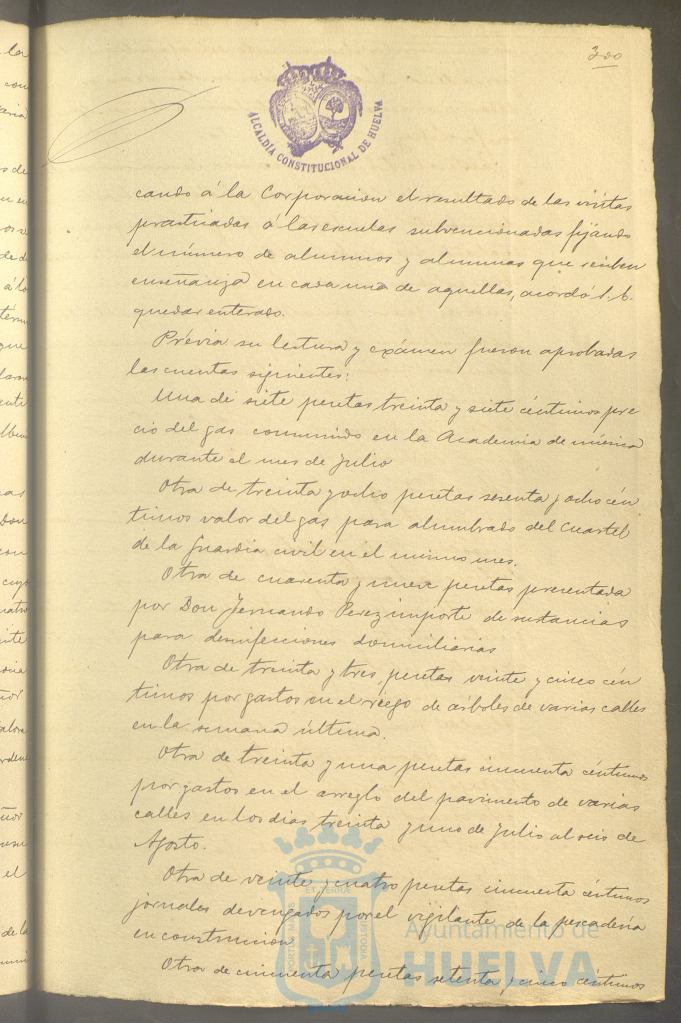 300
ALCALDÍA CONSTITUCIONAL DE HUELVA
cando á la Corporacion el resultado de las visitas
practicadas á las escuelas subvencionadas fijando
el número de alumnos y alumnas que reciben
enseñanza en cada una de aquellas, acordó S. E.
quedar enterado.
Prévia su lectura y exámen fueron aprobadas
las cuentas siguientes:
Una de siete pesetas treinta y siete céntimos pre
cio del gas consumido en la Academia de música
durante el mes de Julio
Otra de treinta y ocho pesetas sesenta y ocho cén
timos valor del gas para alumbrado del Cuartel
de la Guardia civil en el mismo mes.
Otra de cuarenta y nueve pesetas presentada
por Don Fernando Perez importe de sustancias
para desinfecciones domiciliarias
Otra de treinta y tres pesetas veinte y cinco cén
timos por gastos en el riego de árboles de varias calles
en la semana última.
Otra de treinta y una pesetas cincuenta céntimos
por gastos en el arreglo del pavimento de varias
calles en los dias treinta y uno de Julio al seis de
Agosto.
Otra de veinte y cuatro pesetas cincuenta céntimos
jornales devengados por el vigilante de la pescadería
en construccion
Otra de cincuenta pesetas setenta y cinco céntimos
Ayuntamiento de
HUELVA